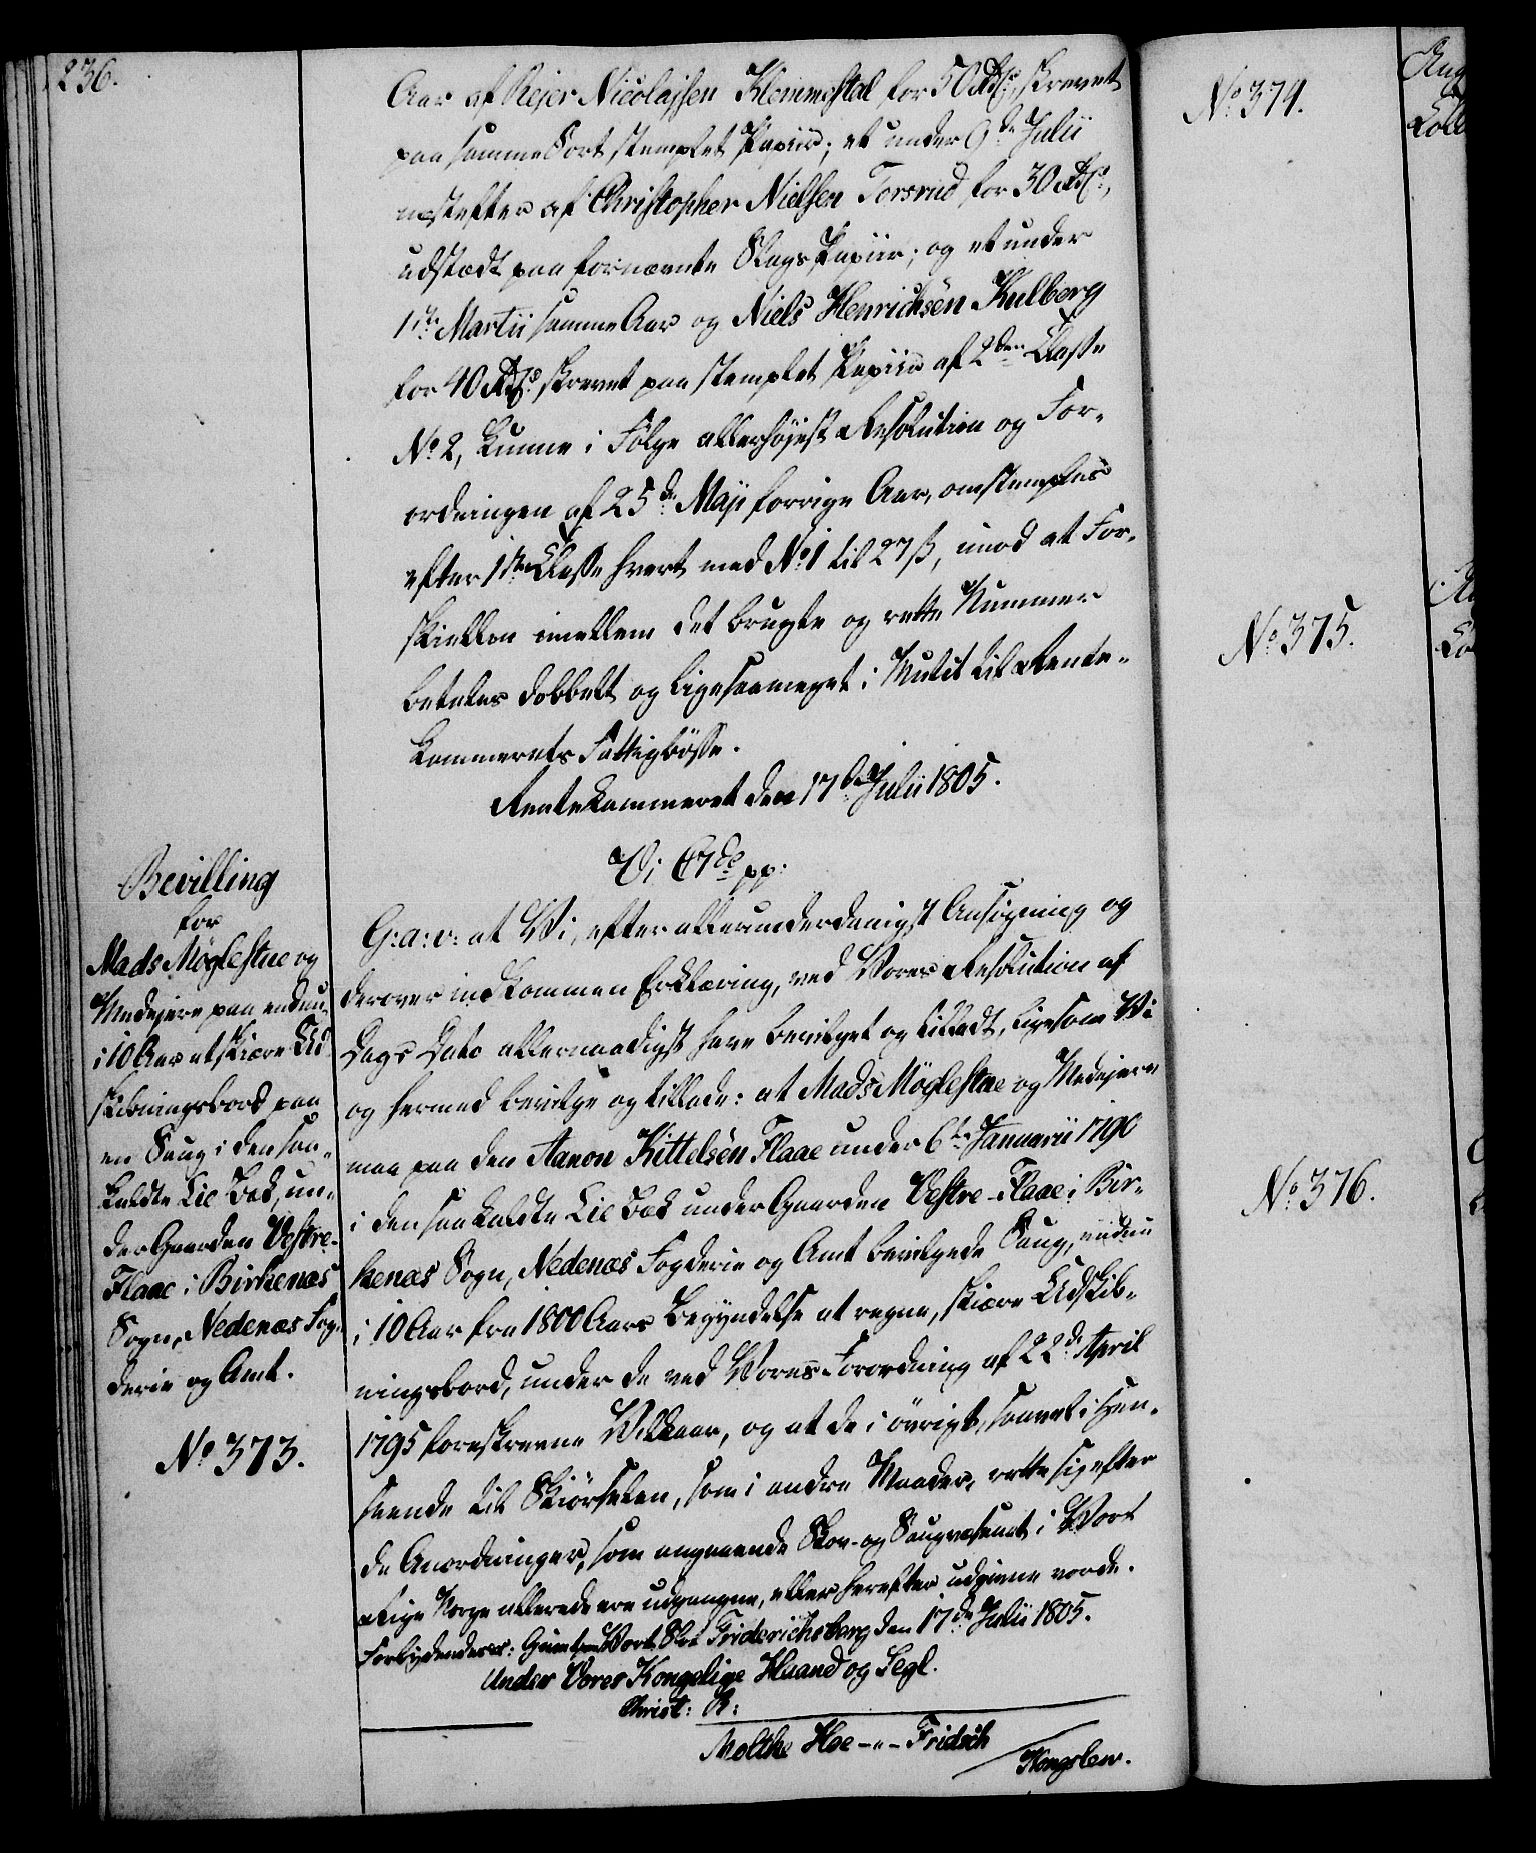 236.
Aar af Rejer Nicolajsen Klemmestal for 50 Rdr, skrevet
paa samme Sort stemplet Papiir; et under 9de Julii
næstefter af Christopher Nielsen Torsrud for 30 Rdr,
udstædt paa fornævnte Slags Papiir; og et under
1ste Martii samme Aar og Niels Henrichsen Kulberg
for 40 Rdr skrevet paa stemplet Papiir af 2den Classe
No 2, kunne i Følge allerhøjest Resolution og For-
ordningen af 25de Maji forrige Aar, omstemples
efter 1ste Classe hvert med No 1 til 27 ß, imod at For-
skiellen imellem det brugte og rette Nummer
betales dobbelt og ligesaameget i Mulct til Rente-
kammerets Fattigbøsse.
Rentekammeret den 17de Julii 1805.
Bevilling
for
Mads Møglestue og
Medejere paa endnu
i 10 Aar at skiære Ud-
skibningsbord paa
en Saug i den saa-
kaldte Lie Bæk, un-
der Gaarden Vestre-
Flaae i Birkenæs
Sogn, Nedenæs Fog-
derie og Amt.
No 373.
Vi C7de pp:
G: a: v: at Vi, efter allerunderdanigst Ansøgning og
derover indkommen Erklæring, ved Vores Resolution af
Dags Dato allernaadigst have bevilget og tilladt, ligesom Vi
og hermed bevilge og tillade: at Mads Møglestue og Medejere
maa paa den Aanon Kittelsen Flaae under 6te Januarii 1790
i den saa kaldte Lie Bæk under Gaarden Vestre-Flaae i Bir-
kenæs Sogn, Nedenæs Fogderie og Amt bevilgede Saug, endnu
i 10 Aar fra 1800 Aars Begyndelse at regne, skiære Udskib-
ningsbord, under de ved Vores Forordning af 22de April
1795 foreskrevne Vilkaar, og at de i øvrigt, saavel i Hen-
seende til Skiørselen, som i andre Maader, rette sig efter
de Anordninger, som angaaende Skov- og Saugvæsenet i Vort
Rige Norge allerede ere udgangne, eller herefter udgivne vorde.
Forbydendes: Givet paa Vort Slot Friderichsberg den 17de Julii 1805.
Under Vores Kongelige Haand og Segl.
Christ: R:
Moltke Hoe -"- Fridsch
Kongslew.
No 374.
No 375.
No 376.